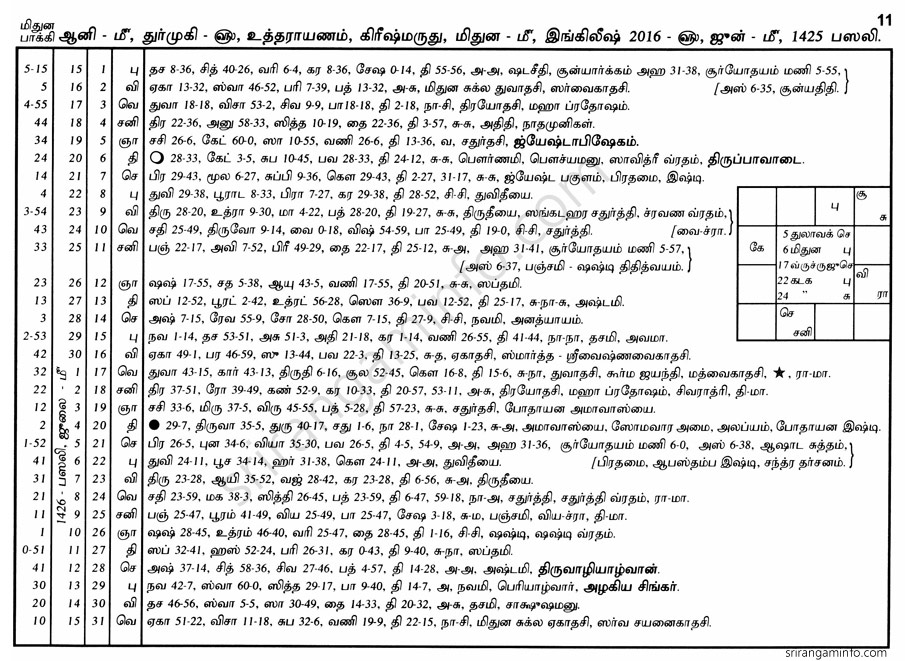 11
மிதுன
பாக்கி ஆனி - மீ, துர்முகி - ௵, உத்தராயணம், கிரீஷ்மருது, மிதுன - மீ, இங்கிலீஷ் 2016 - ௵, ஜூன் - மீ, 1425 பஸலி.
5-15 15 1 பு தச 8-36, சித் 40-26, வரி 6-4, கர 8-36, சேஷ 0-14, தி 55-56, அ-அ, ஷடசீதி, சூன்யார்க்கம் அஹ 31-38, சூர்யோதயம் மணி 5-55,
5 16 2 வி ஏகா 13-32, ஸ்வா 46-52, பரி 7-39, பத் 13-32, அ-சு, மிதுன சுக்ல துவாதசி, ஸர்வைகாதசி. [அஸ் 6-35, சூன்யதிதி.]
4-55 17 3 வெ துவா 18-18, விசா 53-2, சிவ 9-9, பா18-18, தி 2-18, நா-சி, திரயோதசி, மஹா ப்ரதோஷம்.
44 18 4 சனி திர 22-36, அனு 58-33, ஸித்த 10-19, தை 22-36, தி 3-57, சு-சு, அதிதி, நாதமுனிகள்.
34 19 5 ஞா சசி 26-6, கேட் 60-0, ஸா 10-55, வணி 26-6, தி 13-36, வ, சதுர்தசி, ஜ்யேஷ்டாபிஷேகம்.
24 20 6 தி 28-33, கேட் 3-5, சுப 10-45, பவ 28-33, தி 24-12, சு-சு, பௌர்ணமி, பௌச்யமனு, ஸாவித்ரீ வ்ரதம், திருப்பாவாடை.
14 21 7 செ பிர 29-43, மூல 6-27, சுப்பி 9-36, கௌ 29-43, தி 2-27, 31-17, சு-சு, ஜ்யேஷ்ட பகுளம், பிரதமை, இஷ்டி.
4 22 8 பு துவி 29-38, பூராட 8-33, பிரா 7-27, கர 29-38, தி 28-52, சி-சி, துவிதீயை.
3-54 23 9 வி திரு 28-20, உத்ரா 9-30, மா 4-22, பத் 28-20, தி 19-27, சு-சு, திருதீயை, ஸங்கடஹர சதுர்த்தி, ச்ரவண வ்ரதம்,
43 24 10 வெ சதி 25-49, திருவோ 9-14, வை 0-18, விஷ் 54-59, பா 25-49, தி 19-0, சி-சி, சதுர்த்தி. [வை-ச்ரா.
33 25 11 சனி பஞ் 22-17, அவி 7-52, பிரீ 49-29, தை 22-17, தி 25-12, சு-அ, அஹ 31-41, சூர்யோதயம் மணி 5-57,
[அஸ் 6-37, பஞ்சமி - ஷஷ்டி திதித்வயம்.
23 26 12 ஞா ஷஷ் 17-55, சத 5-38, ஆயு 43-5, வணி 17-55, தி 20-51, சு-சு, ஸப்தமி.
13 27 13 தி ஸப் 12-52, பூரட் 2-42, உத்ரட் 56-28, ஸௌ 36-9, பவ 12-52, தி 25-17, சு-நா-சு, அஷ்டமி.
3 28 14 செ அஷ் 7-15, ரேவ 55-9, சோ 28-50, கௌ 7-15, தி 27-9, சி-சி, நவமி, அனத்யாயம்.
2-53 29 15 பு நவ 1-14, தச 53-51, அசு 51-3, அதி 21-18, கர 1-14, வணி 26-55, தி 41-44, நா-நா, தசமி, அவமா.
42 30 16 வி ஏகா 49-1, பர 46-59, ஸு 13-44, பவ 22-3, தி 13-25, சு-த, ஏகாதசி, ஸ்மார்த்த - ஸ்ரீவைஷ்ணவைகாதசி.
32 1 17 வெ துவா 43-15, கார் 43-13, திருதி 6-16, சூல 52-45, கௌ 16-8, தி 15-6, சு-நா, துவாதசி, கூர்ம ஜயந்தி, மத்வைகாதசி, ★, ரா-மா.
22 2 18 சனி திர 37-51, ரோ 39-49, கண் 52-9, கர 10-33, தி 20-57, 53-11, அ-சு, திரயோதசி, மஹா ப்ரதோஷம், சிவராத்ரி, தி-மா.
12 3 19 ஞா சசி 33-6, மிரு 37-5, விரு 45-55, பத் 5-28, தி 57-23, சு-சு, சதுர்தசி, போதாயன அமாவாஸ்யை.
2 4 20 தி 29-7, திருவா 35-5, துரு 40-17, சது 1-6, நா 28-1, சேஷ 1-23, சு-அ, அமாவாஸ்யை, ஸோமவார அமை, அலப்யம், போதாயன இஷ்டி.
1-52 5 21 செ பிர 26-5, புன 34-6, வியா 35-30, பவ 26-5, தி 4-5, 54-9, அ-அ, அஹ 31-36, சூர்யோதயம் மணி 6-0, அஸ் 6-38, ஆஷாட சுத்தம்,
41 6 22 பு துவி 24-11, பூச 34-14, ஹர் 31-38, கௌ 24-11, அ-அ, துவிதீயை. [பிரதமை, ஆபஸ்தம்ப இஷ்டி, சந்த்ர தர்சனம்.
31 7 23 வி திரு 23-28, ஆயி 35-52, வஜ் 28-42, கர 23-28, தி 6-56, சு-அ, திருதீயை.
21 8 24 வெ சதி 23-59, மக 38-3, ஸித்தி 26-45, பத் 23-59, தி 6-47, 59-18, நா-அ, சதுர்த்தி, சதுர்த்தி வ்ரதம், ரா-மா.
11 9 25 சனி பஞ் 25-47, பூரம் 41-49, விய 25-49, பா 25-47, சேஷ 3-18, சு-ம, பஞ்சமி, விய-ச்ரா, தி-மா.
1 10 26 ஞா ஷஷ் 28-45, உத்ரம் 46-40, வரி 25-47, தை 28-45, தி 1-16, சி-சி, ஷஷ்டி, ஷஷ்டி வ்ரதம்.
0-51 11 27 தி ஸப் 32-41, ஹஸ் 52-24, பரி 26-31, கர 0-43, தி 9-40, சு-நா, ஸப்தமி.
41 12 28 செ அஷ் 37-14, சித் 58-36, சிவ 27-46, பத் 4-57, தி 14-28, அ-அ, அஷ்டமி, திருவாழியாழ்வான்.
30 13 29 பு நவ 42-7, ஸ்வா 60-0, ஸித்த 29-17, பா 9-40, தி 14-7, அ, நவமி, பெரியாழ்வார், அழகிய சிங்கர்.
20 14 30 வி தச 46-56, ஸ்வா 5-5, ஸா 30-49, தை 14-33, தி 20-32, அ-சு, தசமி, சாக்ஷுஷமனு.
10 15 31 வெ ஏகா 51-22, விசா 11-18, சுப 32-6, வணி 19-9, தி 22-15, நா-சி, மிதுன சுக்ல ஏகாதசி, ஸர்வ சயனைகாதசி.
1426 - பஸலி, ஜூலை - மீ
பு
சூ
சு
கே
5 துலாவக் செ
6 மிதுன பு
17 வ்ருச்சுஜுசெ
22 கடக பு
24 " சு
வி
ரா
செ
சனி
srirangaminfo.com
srirangaminfo.com